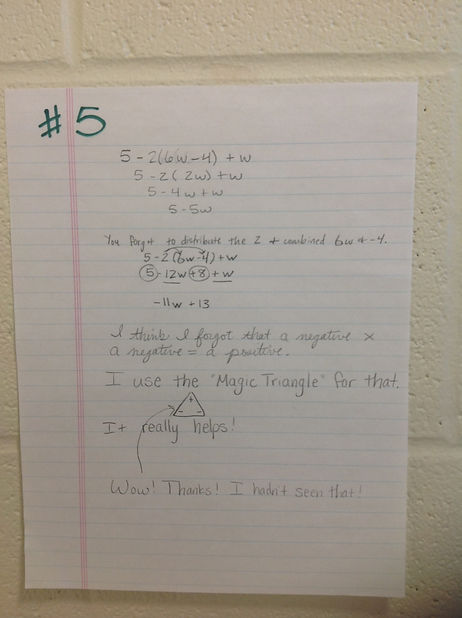 #5
5 - 2(6w - 4) + w
5 - 2( 2w) + w
5 - 4w + w
5 - 5w
You forgot to distribute the 2 + combined 6w + -4.
5 - 2(6w - 4) + w
5 - 12w + 8 + w
-11w + 13
I think I forgot that a negative ×
a negative = a positive.
I use the "Magic Triangle" for that.
+
- -
It really helps!
Wow! Thanks! I hadn't seen that!